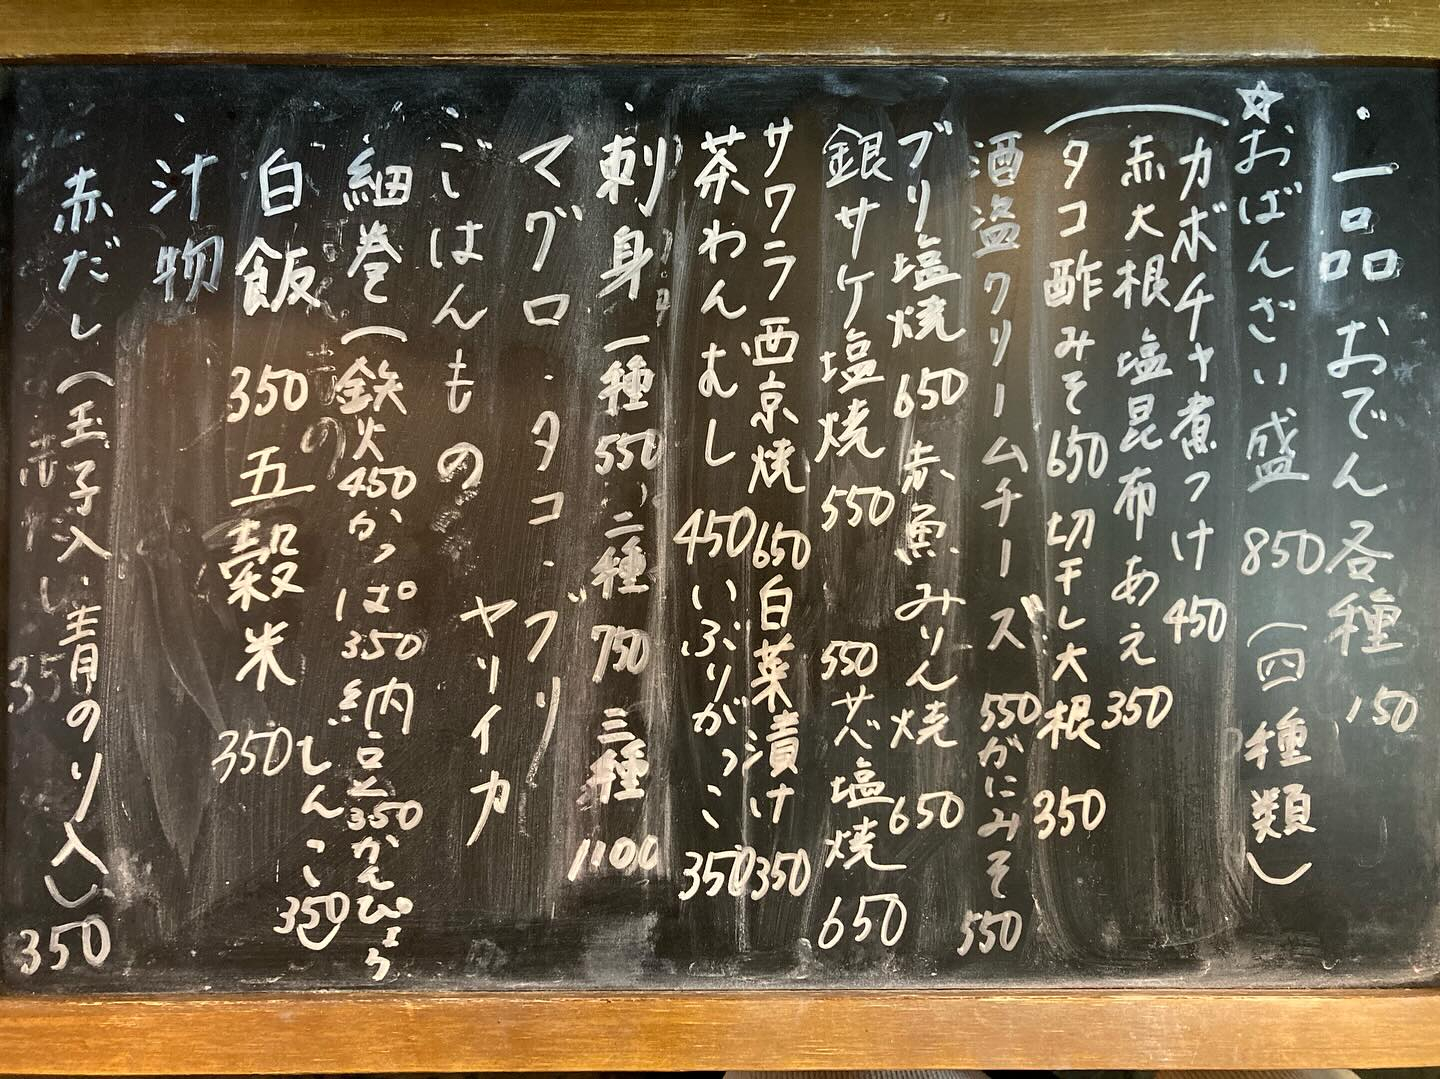 ・一品 おでん各種 150
☆おばんざい盛 850 (四種類)
カボチャ煮つけ 450
赤大根 塩昆布あえ 350
タコ酢みそ 650 切干し大根 350
酒盗クリームチーズ 550 がにみそ 550
ブリ塩焼 650 赤魚みりん焼 650
銀サケ塩焼 550 サバ塩焼 650
サワラ西京焼 650 白菜漬け 350
茶わんむし 450 いぶりがっこ 350
・刺身 一種 550 二種 750 三種 1100
マグロ・タコ・ブリ
ヤリイカ
・ごはんもの
細巻(鉄火 450 かっぱ 350 納豆 350 かんぴょう
しんこ 350)
白飯 350 五穀米 350
・汁物
赤だし(玉子入り・青のり入) 350